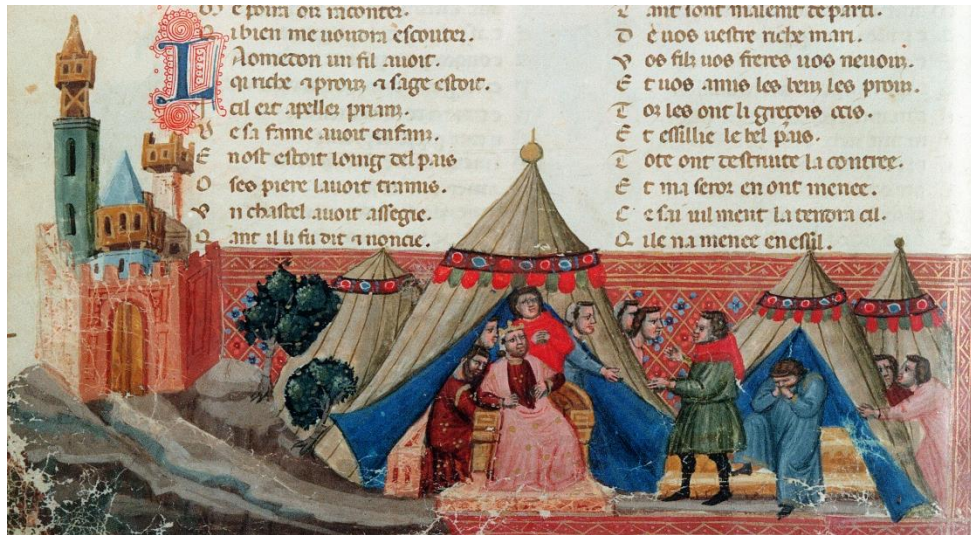 e poira oir raconter.
i bien me uoudra escouter.
L Aomedon un fil auoit.
qui riche & prouz & sage estoit.
cil ert apellez priamz.
e sa fame auoit enfanz.
E n ost estoit loing del pais
O ses piere lauoit tramis.
V n chastel auoit assegie.
Q ant il li fu dit & noncie.
ant sont malement departi.
D e uos uestre riche mari.
V os filz uos freres uos neuouz.
E t uos amis les les prouz.
T oz les ont li gregois ocis.
E t essillie le bel pais.
T ote ont destruite la contree.
E t ma seror en ont menee.
C e sai uilment la tendra cil.
Q i le na menee en esil.